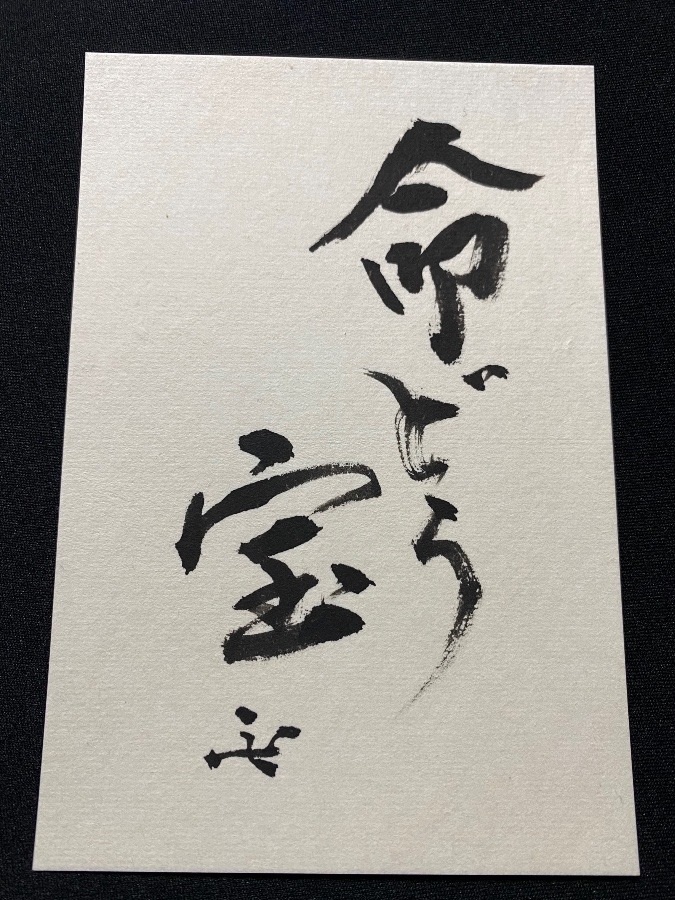 命どぅ
宝